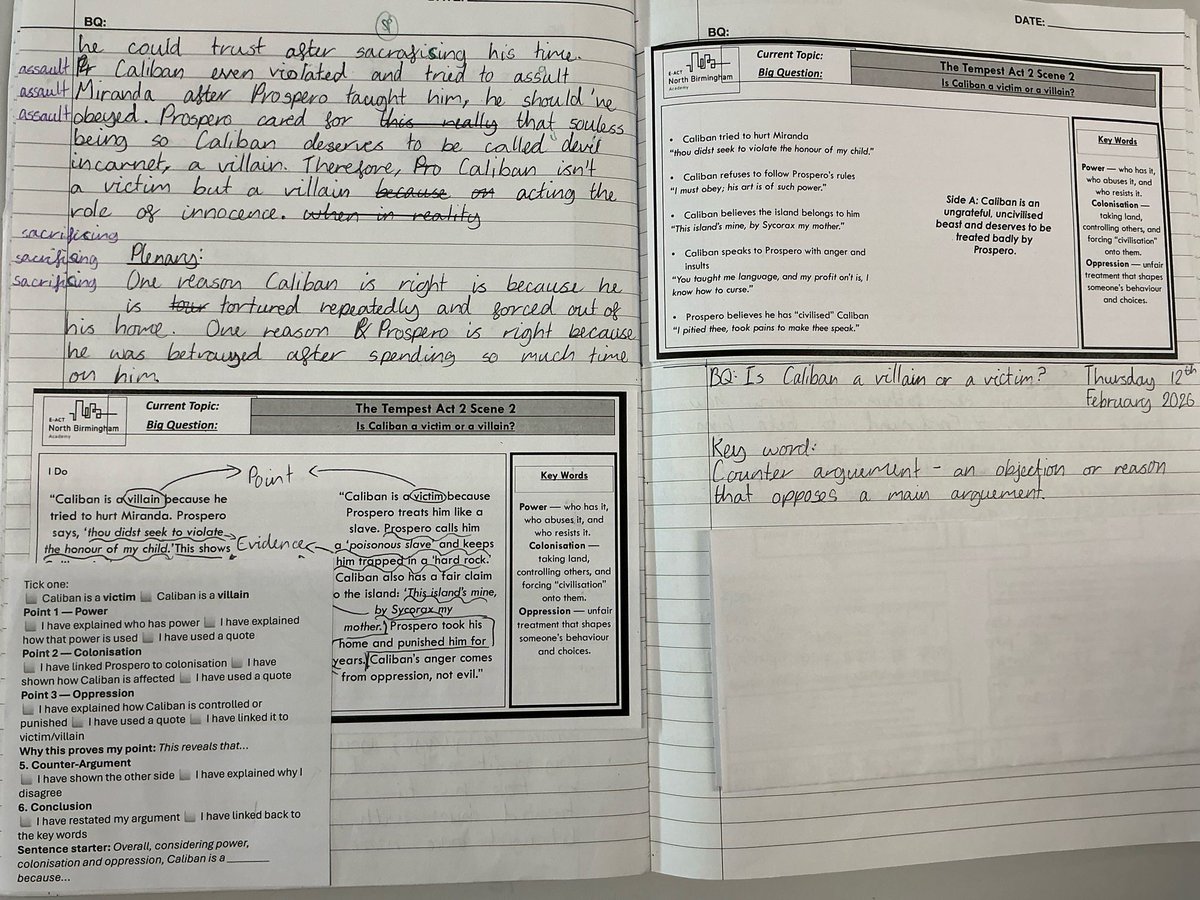 BQ:
he could trust after sacrafising his time.
assault Caliban even violated and tried to assult
assault Miranda after Prospero taught him, he should've
assault obeyed. Prospero cared for this really that souless
being so Caliban deserves to be called devil
incarnet, a villain. Therefore, Pro Caliban isn't
a victim but a villain because on acting the
role of innocence. when in reality
sacrifising
sacrifising Plenary:
sacrifising One reason Caliban is right is because he
is tour tortured repeatedly and forced out of
his home. One reason Prospero is right because
he was betrayed after spending so much time
on him.
E-ACT
North Birmingham
Academy
Current Topic:
Big Question:
The Tempest Act 2 Scene 2
Is Caliban a victim or a villain?
I Do
Point
"Caliban is a villain because he
tried to hurt Miranda. Prospero
says, 'thou didst seek to violate
the honour of my child.' This shows
Evidence
"Caliban is a victim because
Prospero treats him like a
slave. Prospero calls him
a 'poisonous slave' and keeps
him trapped in a 'hard rock.'
Caliban also has a fair claim
o the island: 'This island's mine,
by Sycorax my
mother.' Prospero took his
home and punished him for
years. Caliban's anger comes
from oppression, not evil."
Key Words
Power — who has it,
who abuses it, and
who resists it.
Colonisation —
taking land,
controlling others, and
forcing "civilisation"
onto them.
Oppression — unfair
treatment that shapes
someone's behaviour
and choices.
Tick one:
Caliban is a victim Caliban is a villain
Point 1 — Power
I have explained who has power I have explained
how that power is used I have used a quote
Point 2 — Colonisation
I have linked Prospero to colonisation I have
shown how Caliban is affected I have used a quote
Point 3 — Oppression
I have explained how Caliban is controlled or
punished I have used a quote I have linked it to
victim/villain
Why this proves my point: This reveals that...
5. Counter-Argument
I have shown the other side I have explained why I
disagree
6. Conclusion
I have restated my argument I have linked back to
the key words
Sentence starter: Overall, considering power,
colonisation and oppression, Caliban is a ________
because...
BQ:
DATE:
E-ACT
North Birmingham
Academy
Current Topic:
Big Question:
The Tempest Act 2 Scene 2
Is Caliban a victim or a villain?
• Caliban tried to hurt Miranda
"thou didst seek to violate the honour of my child."
• Caliban refuses to follow Prospero's rules
"I must obey; his art is of such power."
• Caliban believes the island belongs to him
"This island's mine, by Sycorax my mother."
• Caliban speaks to Prospero with anger and
insults
"You taught me language, and my profit on't is, I
know how to curse."
• Prospero believes he has "civilised" Caliban
"I pitied thee, took pains to make thee speak."
Side A: Caliban is an
ungrateful, uncivilised
beast and deserves to be
treated badly by
Prospero.
Key Words
Power — who has it,
who abuses it, and
who resists it.
Colonisation —
taking land,
controlling others, and
forcing "civilisation"
onto them.
Oppression — unfair
treatment that shapes
someone's behaviour
and choices.
BQ: Is Caliban a villain or a victim? Thursday 12th
February 2026
Key word:
Counter arguement - an objection or reason
that opposes a main arguement.